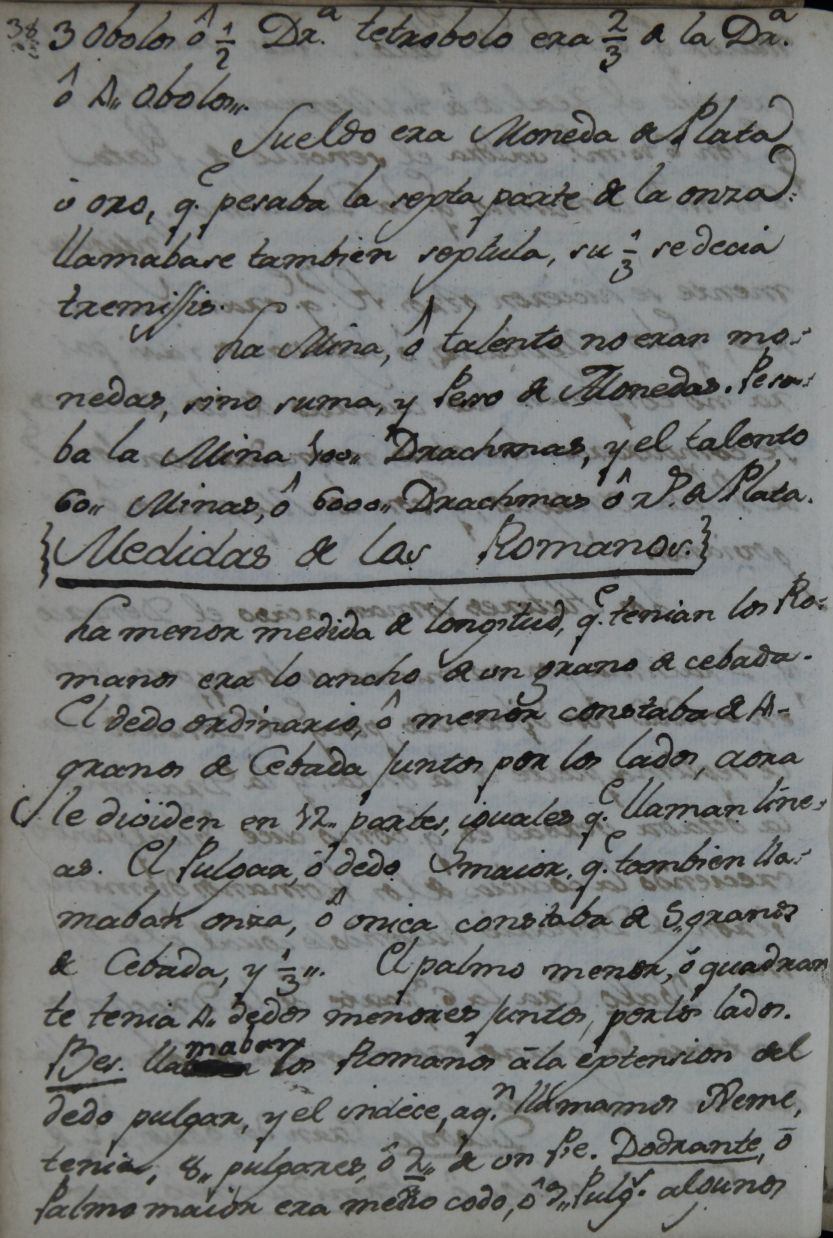 38
3 Obolos ô 1/2 Dr.ª tetrobolo era 2/3 de la Dr.ª
ô 4,, Obolos,,.
Sueldo era Moneda de Plata
ù oro, q.e pesaba la septa parte de la onza:
llamabase tambien septula, su 1/3 se decia
tremissis.
La Mina, ô talento no eran mo-
nedas, sino suma, y Peso de Monedas. Pesa-
ba la Mina 100,, Drachmas, y el talento
60,, Minas, ô 6000,, Drachmas ô de Plata.
{Medidas de los Romanos.}
La menor medida de longitud, q.e tenian los Ro-
manos era lo ancho de un grano de cebada.
El dedo ordinario, ô menor constaba de 4=
granos de Cebada juntos por los lados, aora
le dividen en 12,, partes, iguales q.e llaman line-
as. El Pulgar, ô dedo maior, q.e tambien lla-
maban onza, ô onica constaba de 5,, granos
de Cebada, y 1/3,,. El palmo menor, ô quadran
te tenia 4,, dedos menores juntos, por los lados.
Bes. llamaban los Romanos à la extension del
dedo pulgar, y el indece, aq.n llamamos Xeme,
tenia, 8,, pulgares, ô 2,, de un Pie. Dodrante, ô
Palmo maior era medio codo, ô 9,, Pulg.s algunos